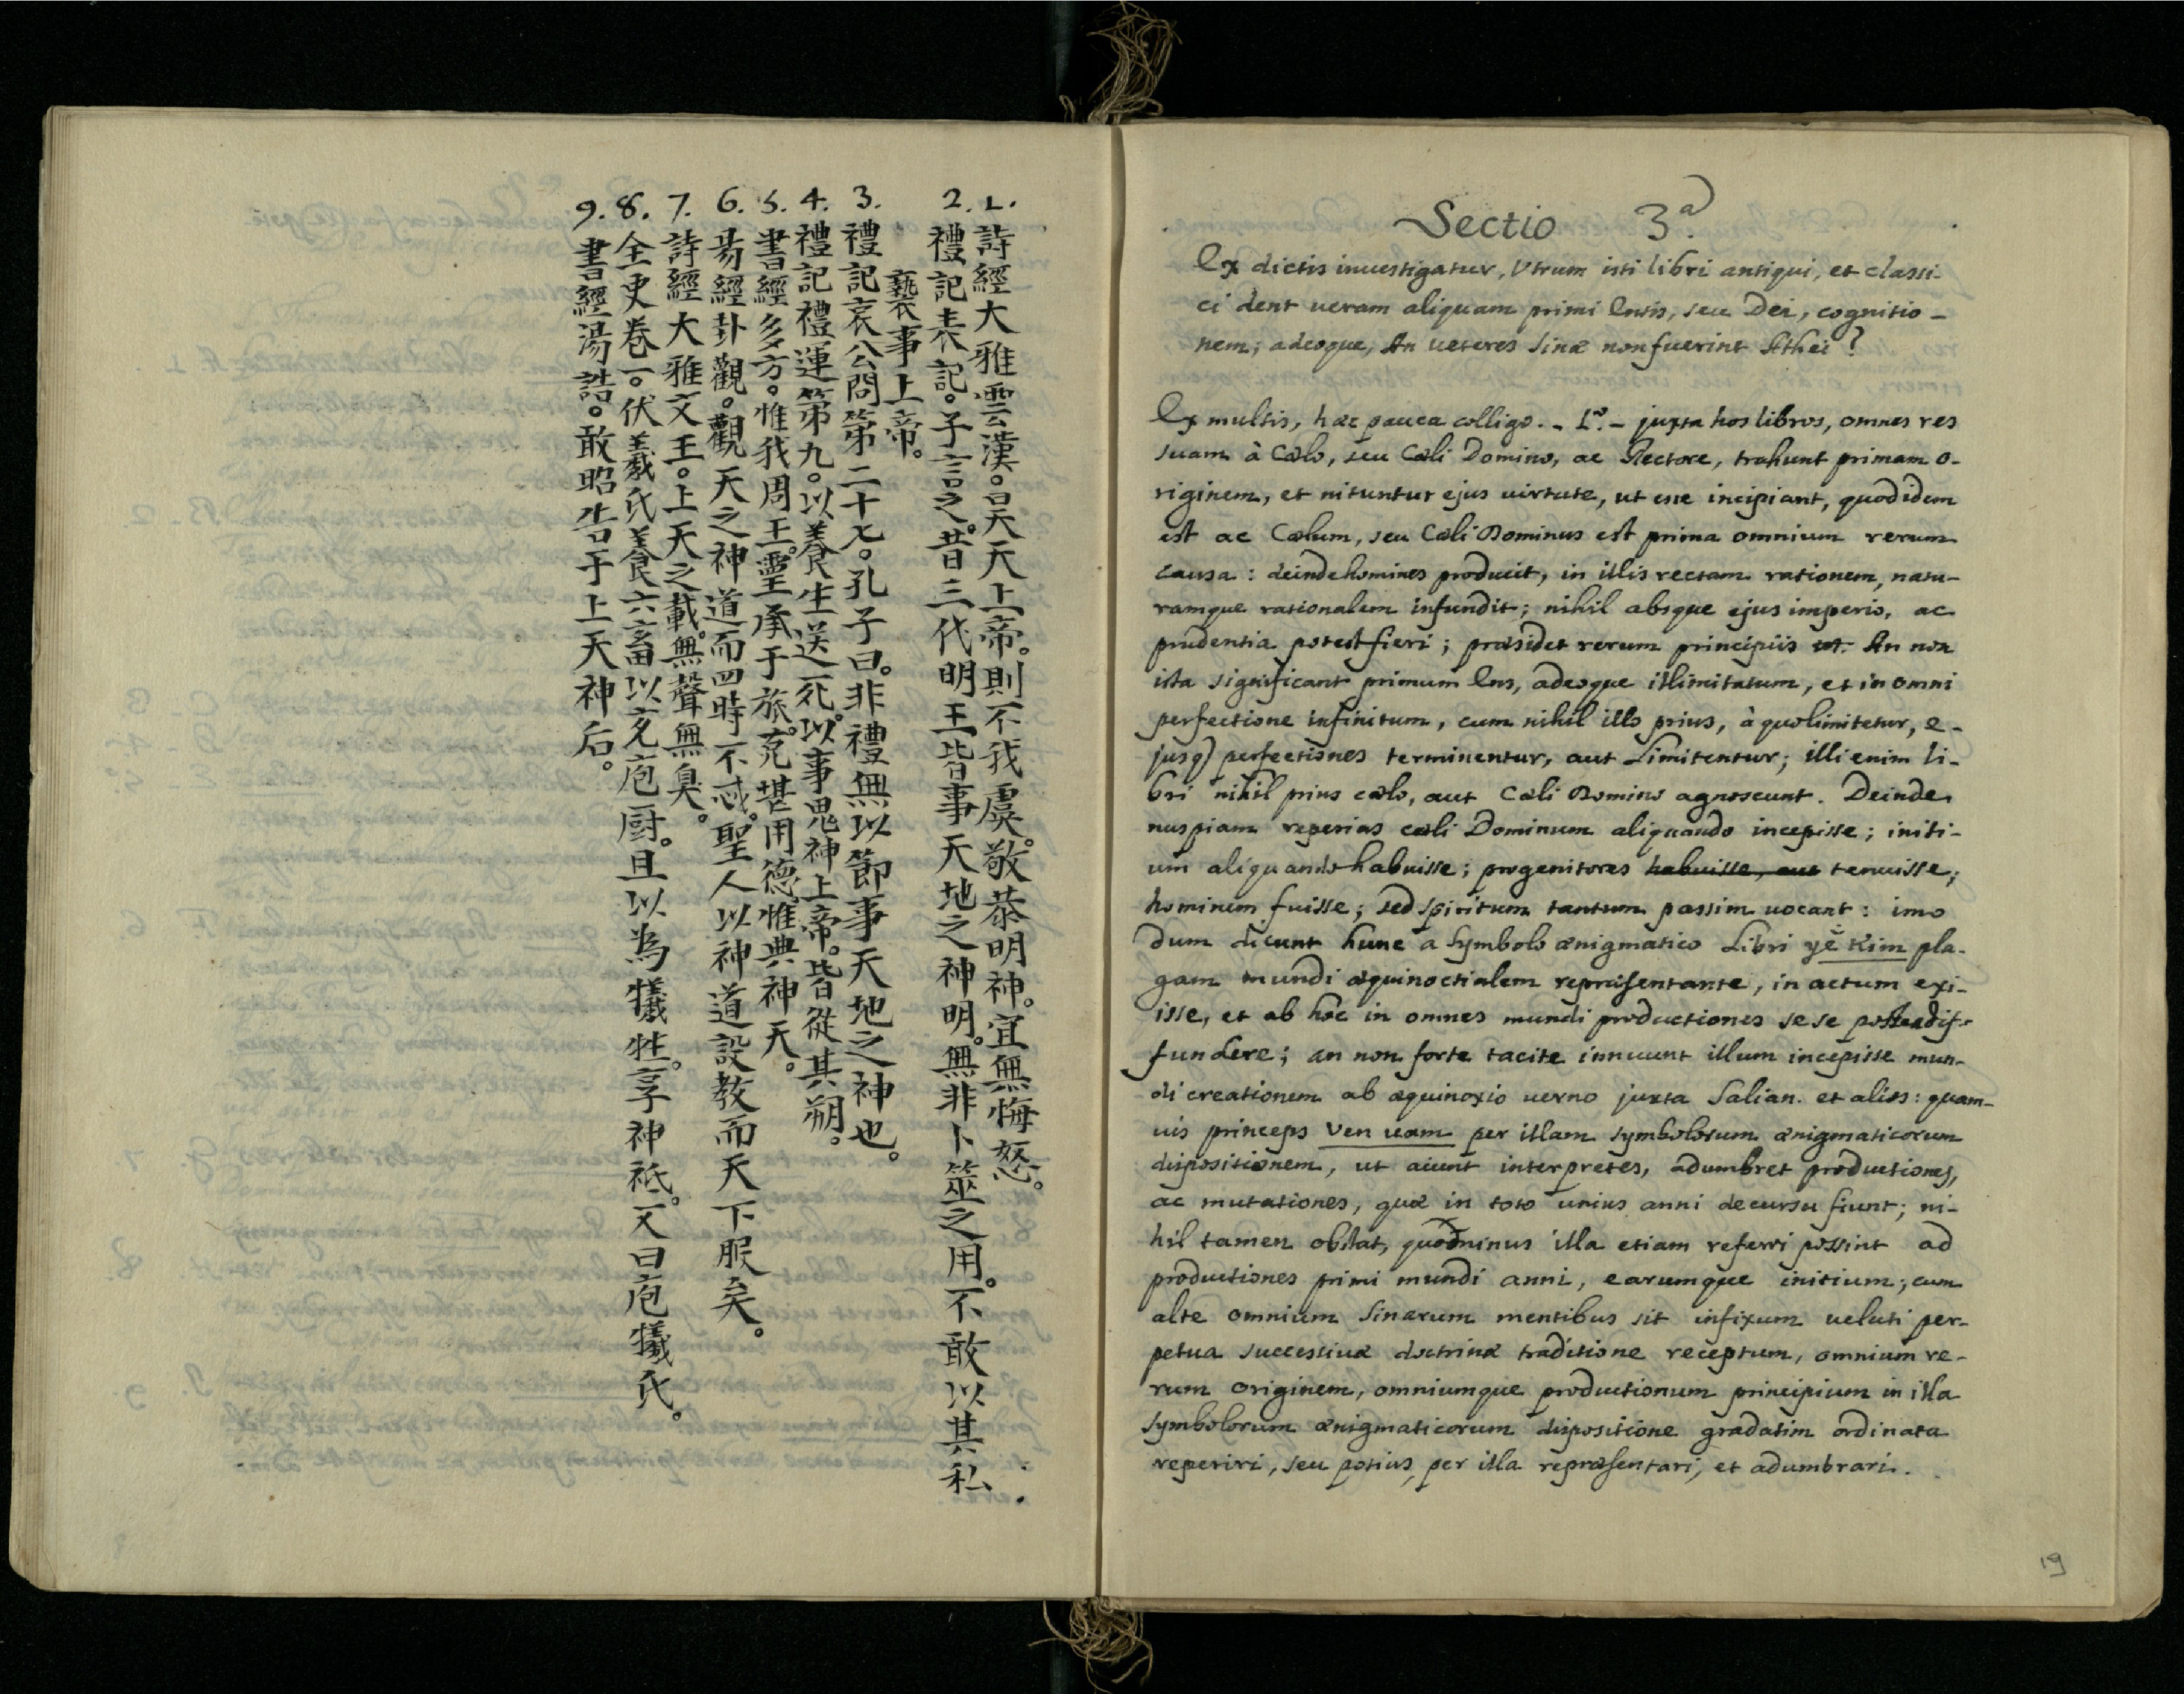 1. 詩經大雅雲漢。昊天上帝。則不我虞。敬恭明神。宜無悔怒。
2. 禮記表記。子言之。昔三代明王皆事天地之神明。無非卜筮之用。不敢以其私
褻事上帝。
3. 禮記哀公問第二十七。孔子曰。非禮無以節事天地之神也。
4. 禮記禮運第九。以養生送死。以事鬼神上帝。皆從其朔。
5. 書經多方。惟我周王。靈承于旅。克堪用德。惟典神天。
6. 易經卦觀。觀天之神道而四時不忒。聖人以神道設教而天下服矣。
7. 詩經大雅文王。上天之載。無聲無臭。
8. 全史卷一。伏羲氏養六畜以充庖厨。且以為犧牲。享神祇。又曰庖犧氏。
9. 書經湯誥。敢昭告于上天神后。
Sectio 3.a
Ex dictis inuestigatur, Vtrum isti libri antiqui, et classi-
ci dent ueram aliquam primi Entis, seu Dei, cognitio-
nem; adeoque, An ueteres Sinæ non fuerint Athei?
Ex multis, hæc pauca colligo. - 1º. - juxta hos libros, omnes res
suam à Cælo, seu Cæli Domino, ac Rectore, trahunt primam o-
riginem, et nituntur ejus uirtute, ut esse incipiant, quod idem
est ac Cælum, seu Cæli Dominus est prima omnium rerum
causa: deinde homines producit, in illis rectam rationem, natu-
ramque rationalem infundit; nihil absque ejus imperio, ac
prudentia potest fieri; præsidet rerum principiis An non
ista significant primum Ens, adeoque illimitatum, et in omni
perfectione infinitum, cum nihil illo prius, à quo limitetur, e-
jusq) perfectiones terminentur, aut Limitentur; illi enim li-
bri nihil prius cælo, aut Cæli Domino agnoscunt. Deinde
nuspiam reperias cæli Dominum aliquando incepisse; initi-
um aliquando habuisse; progenitores habuisse, aut tenuisse;
hominem fuisse; sed spiritum tantum passim uocant: imo
dum dicunt hunc a Symbolo ænigmatico Libri yĕ Kim pla-
gam mundi æquinoctialem repræsentante, in actum exi-
isse, et ab hoc in omnes mundi productiones se se postea dif-
fundere; an non forte tacite innuunt illum incepisse mun-
di creationem ab æquinoxio uerno juxta Salian. et alios: quam-
uis princeps Ven uam per illam symbolorum ænigmaticorum
dispositionem, ut aiunt interpretes, adumbret productiones,
ac mutationes, quæ in toto unius anni decursu fiunt; ni-
hil tamen obstat, quominus illa etiam referri possint ad
productiones primi mundi anni, earumque initium; cum
alte omnium Sinarum mentibus sit infixum ueluti per-
petua successiuæ doctrinæ traditione receptum, omnium re-
rum originem, omniumque productionum principium in illa
symbolorum ænigmaticorum dispositione gradatim ordinata
reperiri, seu potius, per illa repræsentari, et adumbrari.
19